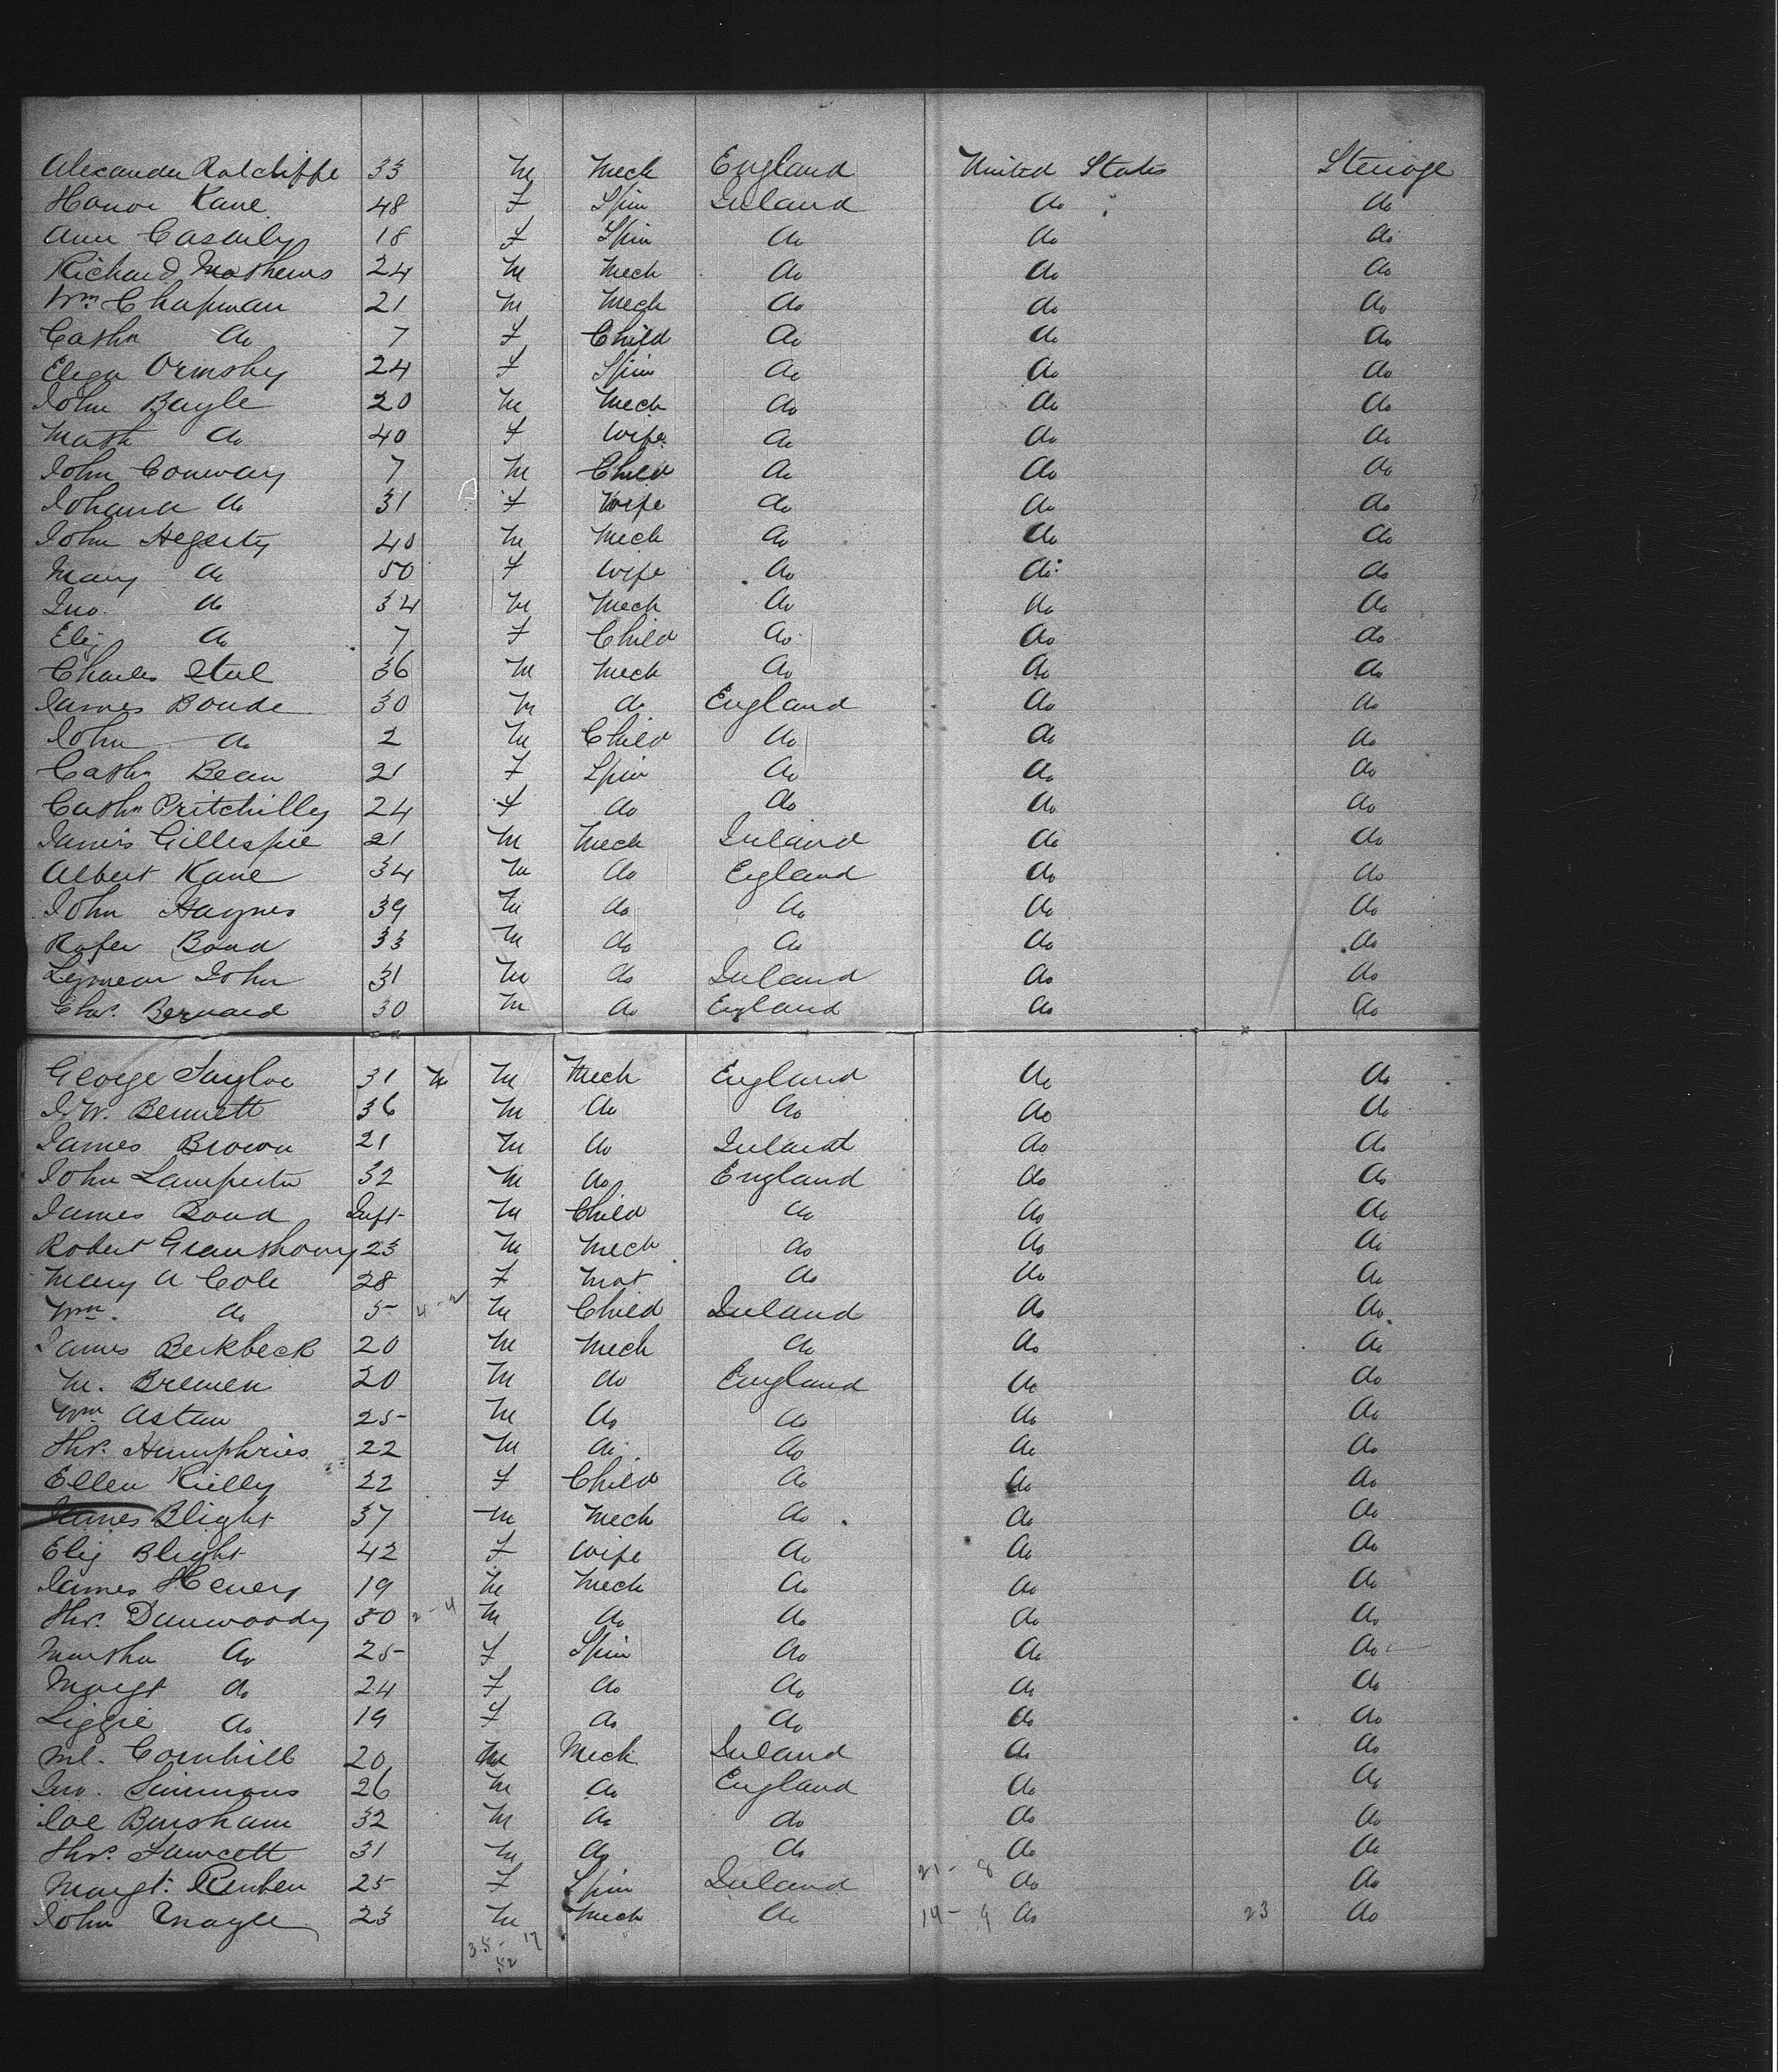 Alexander Ratcliffe 33 M Mech England United States Steerage
Honor Kane 48 F Spin Ireland do do
Ann Cassidy 18 F Spin do do do
Richard Mathews 24 M Mech do do do
Wm Chapman 21 M Mech do do do
Cathn do 7 F Child do do do
Eliza Ormsby 24 F Spin do do do
John Bayle 20 M Mech do do do
Math do 40 F Wife do do do
John Conway 7 M Child do do do
Johana do 31 F Wife do do do
John Hegerty 40 M Mech do do do
Mary do 50 F Wife do do do
Jno. do 34 M Mech do do do
Eliz do 7 F Child do do do
Charles Steel 36 M Mech do do do
James Boude 30 M do England do do
John do 2 M Child do do do
Cathn Bean 21 F Spin do do do
Cathn Pritchilly 24 F do do do do
James Gillespie 21 M Mech Ireland do do
Albert Kane 34 M do England do do
John Haynes 39 M do do do do
Bond 33 M do do do do
John 31 M do Ireland do do
Chas. Bernard 30 M do England do do
George Taylor 31 M M Mech England do do
J. W. Bennett 36 M do do do do
James Brown 21 M do Ireland do do
John Lamperto 32 M do England do do
James Bond Inft M Child do do do
Robert 23 M Mech do do do
Mary A Cole 28 F Mat do do do
Wm. do 5 M Child Ireland do do
James Berkbeck 20 M Mech do do do
M. Bremen 20 M do England do do
Wm Astan 25 M do do do do
Thos. Humphries 22 M do do do do
Ellen Rielly 22 F Child do do do
James Blight 37 M Mech do do do
Eliz Blight 42 F Wife do do do
James Henery 19 M Mech do do do
Thos. Dunwoody 50 2-4 M do do do do
Martha do 25 F Spin do do do
Margt do 24 F do do do do
Lizzie do 19 F do do do do
Ml. Cornhill 20 M Mech Ireland do do
Jno. Simmons 26 M do England do do
Joe Bursham 32 M do do do do
Thos. Fawcett 31 M do do do do
Margt. Reuben 25 F Spin Ireland 21-8 do do
John Nagle 23 M Mech do 14-9 do 23 do
35-17
52